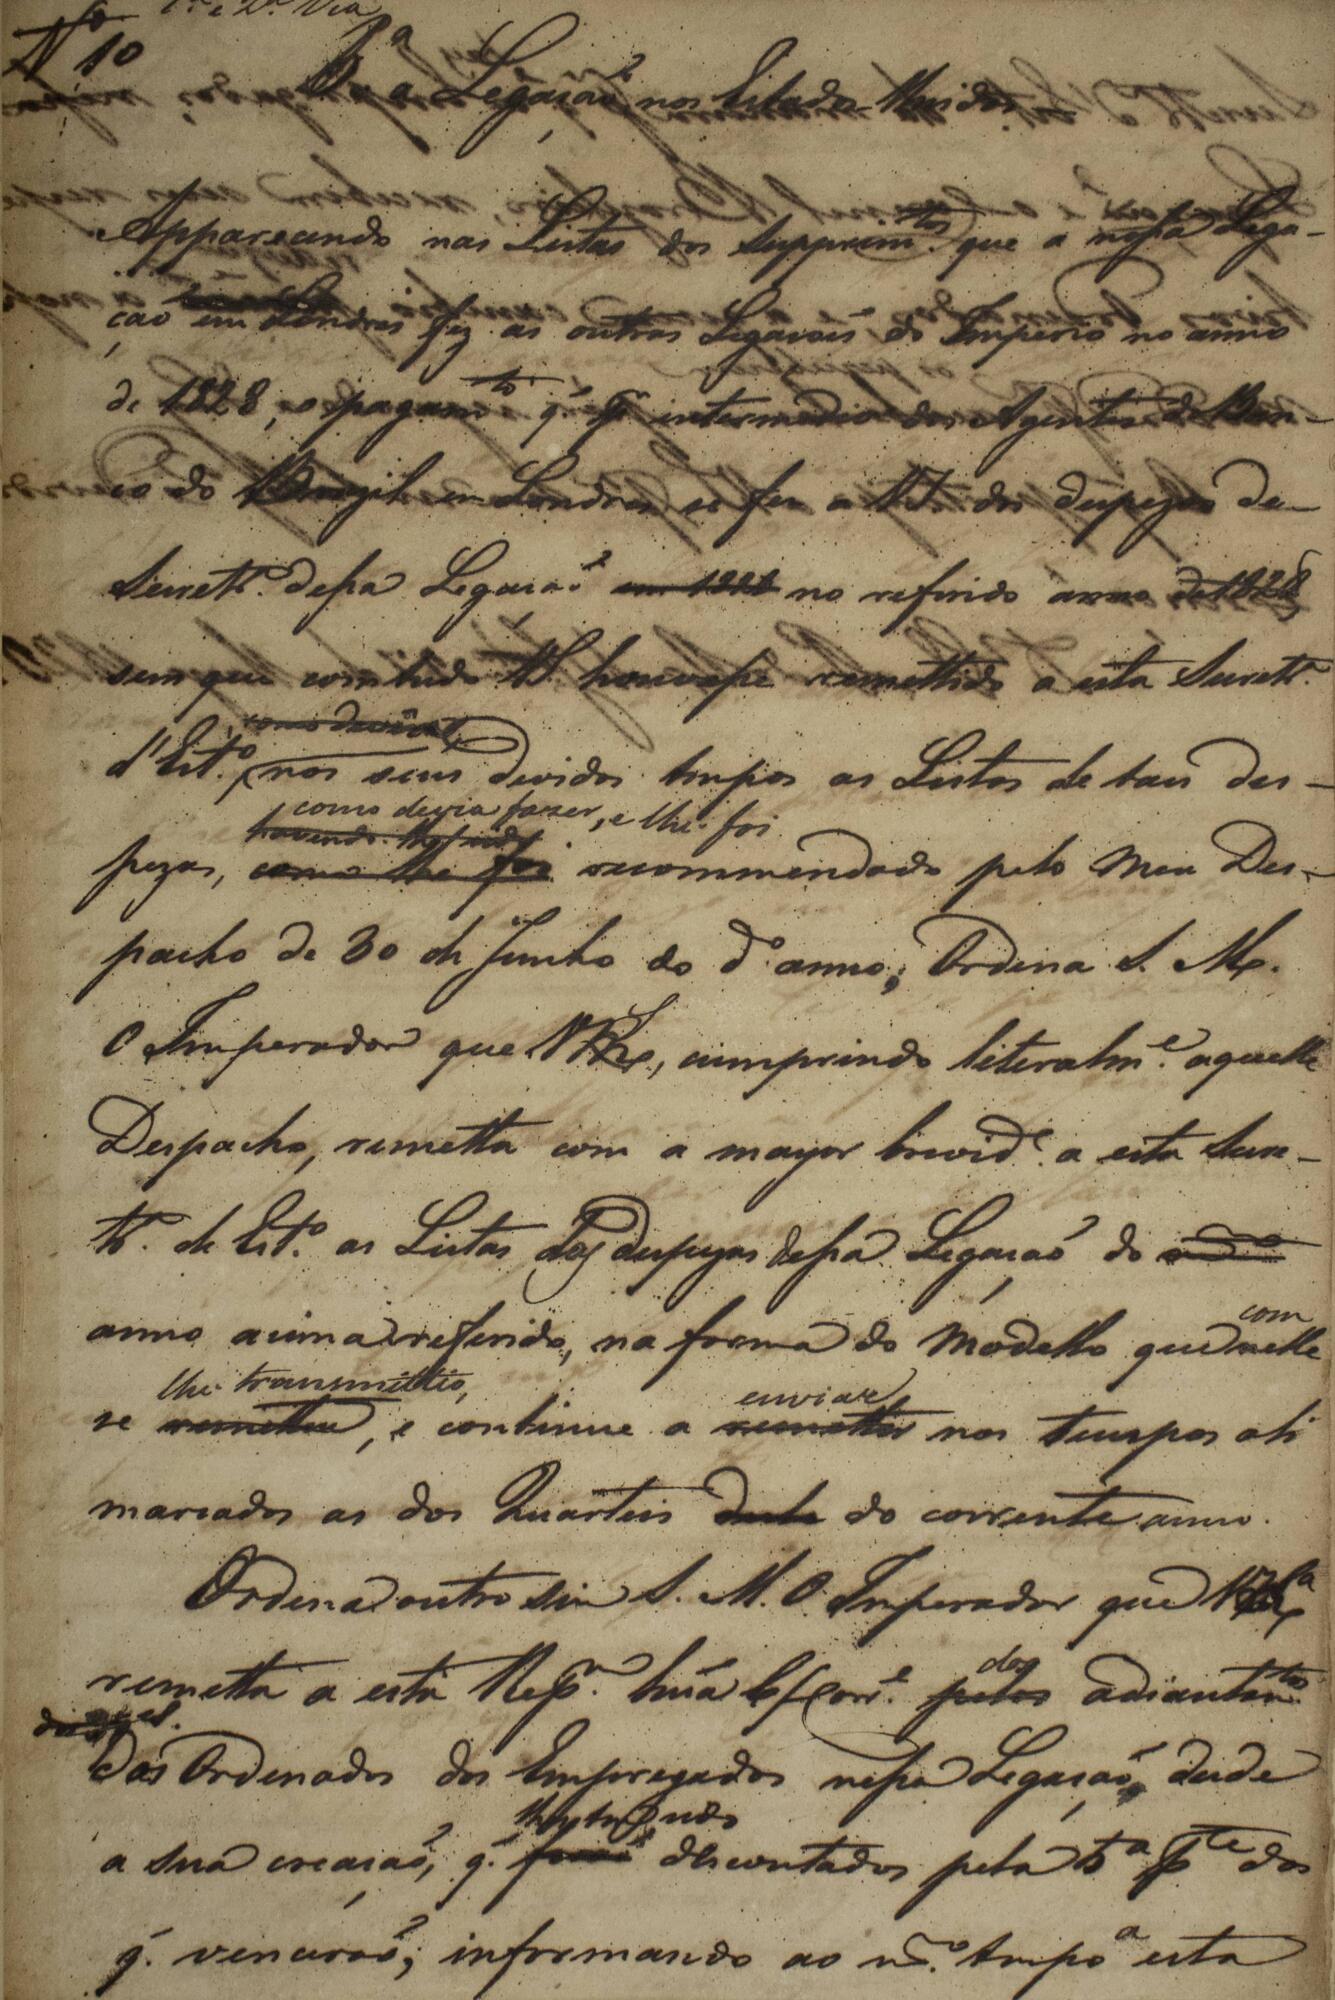 1ª e 2ª Via
Nº 10
Pª a Legação nos Estados Unidos
Apparecendo nas Listas dos supprimtos que a nossa Lega-
ção em Londres fez as outras Legaçoẽs do Imperio no anno
de 1828, o pagamto q' pr intermedio dos Agentes do Ban-
co do Brazil em Londres se fez a V.S. das despezas de
Secretª dessa Legação em 1828 no referido anno de 1828
sem que comtudo V.S. houvesse remettido a esta Secretª
como devêra
d'Estº, nos seus devidos tempos as Listas de taes des-
como devia fazer, e lhe foi
havendo-lhe sido
pezas, como lhe foi recommendado pelo meu Des-
pacho de 30 de Junho do dº anno; Ordena S. M.
O Imperador que V.S., cumprindo literalme aquelle
Despacho, remetta com a mayor brevide a esta Secre-
tª de Estº as Listas das despezas dessa Legação do
anno acima referido, na forma do Modello que com elle
lhe transmittio,
se remetteu, e continue a remetter nos tempos ali
enviar
marcados as dos Quarteis deste do corrente anno.
Ordena outro sim S. M. O Imperador que V.Sª
remetta a esta Repm. huã C/corre. pelos adiantamtos
dos
Dos Ordenados dos Empregados nessa Legação, desde
a sua creação, q' descontados pela 5ª Pte dos
q' vencerão; informando ao mmo. tempo a esta